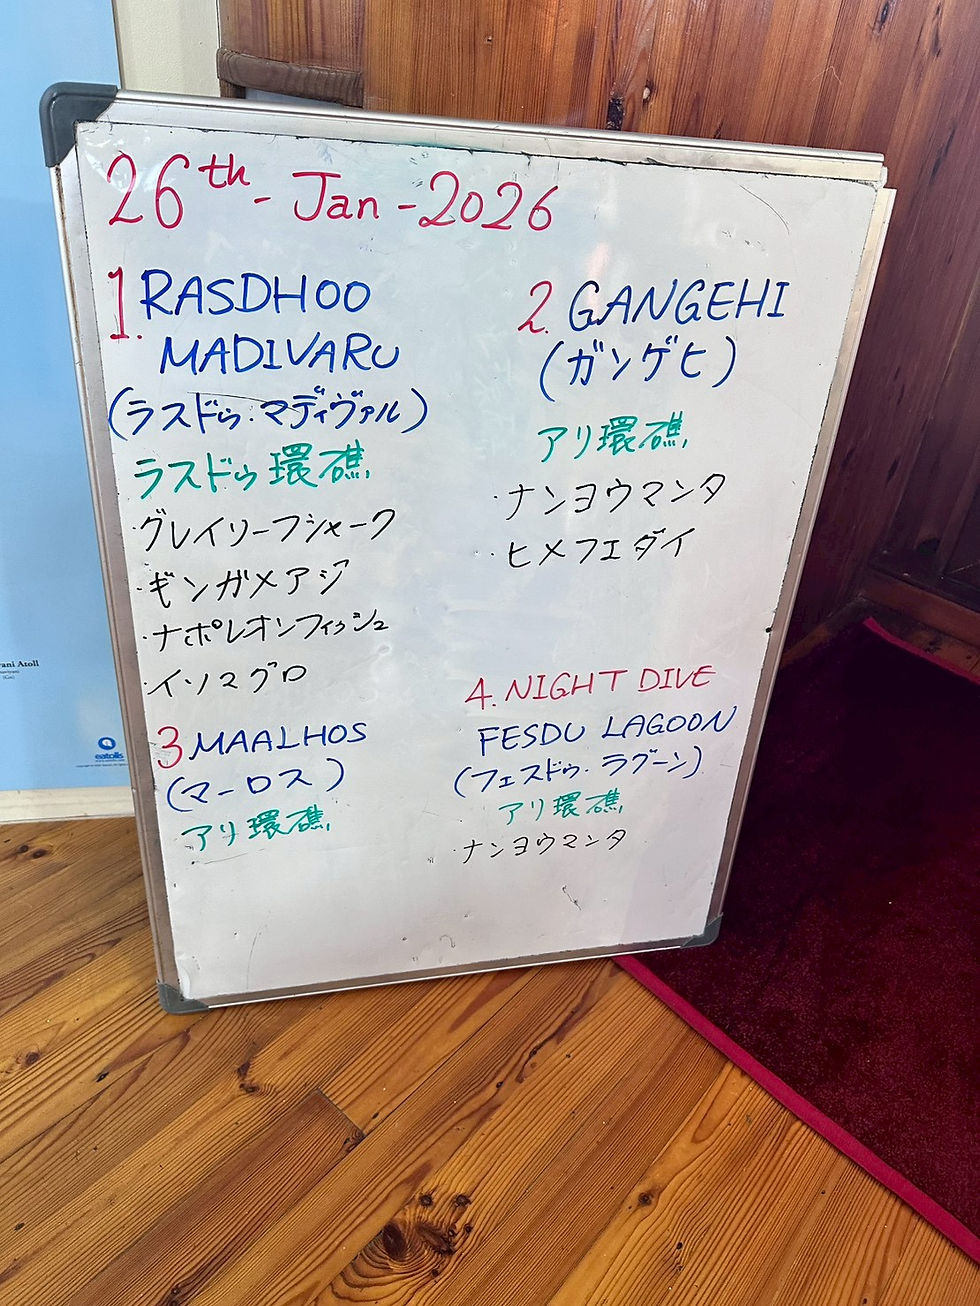 26th - Jan - 2026
1. RASDHOO
MADIVARU
(ラスドゥ・マディヴァル)
ラスドゥ環礁
・グレイリーフシャーク
・ギンガメアジ
・ナポレオンフィッシュ
・イソマグロ
2. GANGEHI
(ガンゲヒ)
アリ環礁
・ナンヨウマンタ
・ヒメフエダイ
3 MAALHOS
(マーロス)
アリ環礁
4. NIGHT DIVE
FESDU LAGOON
(フェスドゥ・ラグーン)
アリ環礁
・ナンヨウマンタ
Atoll
eatolls